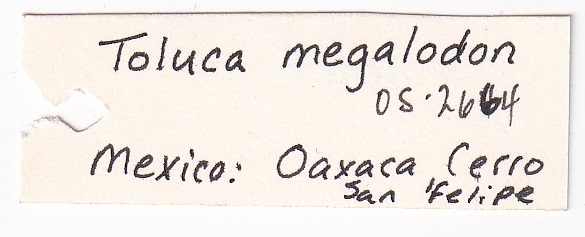 Toluca megalodon
OS.2664
Mexico: Oaxaca Cerro
San Felipe